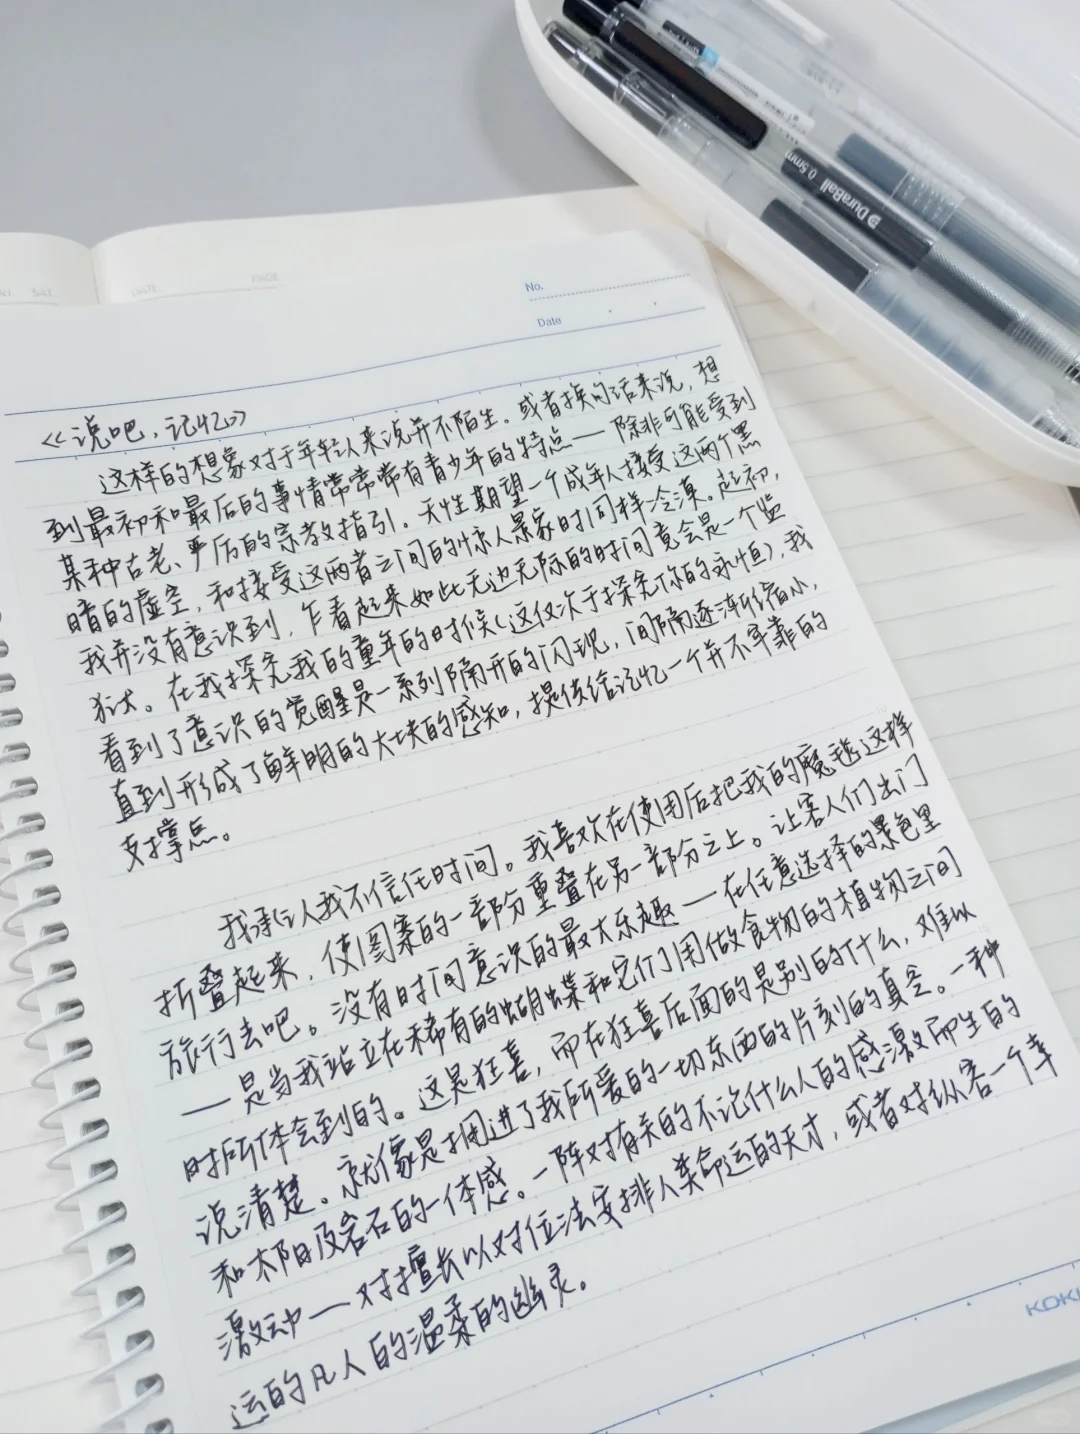 SAT
DATE
PAGE
No.
Date
DuraBall 0.5mm
《说吧，记忆》
这样的想象对于年轻人来说并不陌生。或者换句话来说，想
到最初和最后的事情常常带有青少年的特点——除非可能受到
某种古老、严厉的宗教指引。天性期望一个成年人接受这两个黑
暗的虚空，和接受这两者之间的惊人景象时同样冷漠。起初，
我并没有意识到，乍看起来如此无边无际的时间竟会是一个监
狱。在我探究我的童年的时候（这仅次于探究你的永恒），我
看到了意识的觉醒是一系列隔开的闪现，间隔逐渐缩小，
直到形成了鲜明的大块的感知，提供给记忆一个并不牢靠的
支撑点。
我承认我不信任时间。我喜欢在使用后把我的魔毯这样
折叠起来，使图案的一部分重叠在另一部分之上。让客人们出门
旅行去吧。没有时间意识的最大乐趣——在任意选择的景色里
——是当我站立在稀有的蝴蝶和它们用做食物的植物之间
时所体会到的。这是狂喜，而在狂喜后面的是别的什么，难以
说清楚。就像是拥进了我所爱的一切东西的片刻的真空。一种
和太阳及岩石的一体感。一阵对有关的不论什么人的感激而生的
激动——对擅长以对位法安排人类命运的天才，或者对纵容一个幸
运的凡人的温柔的幽灵。